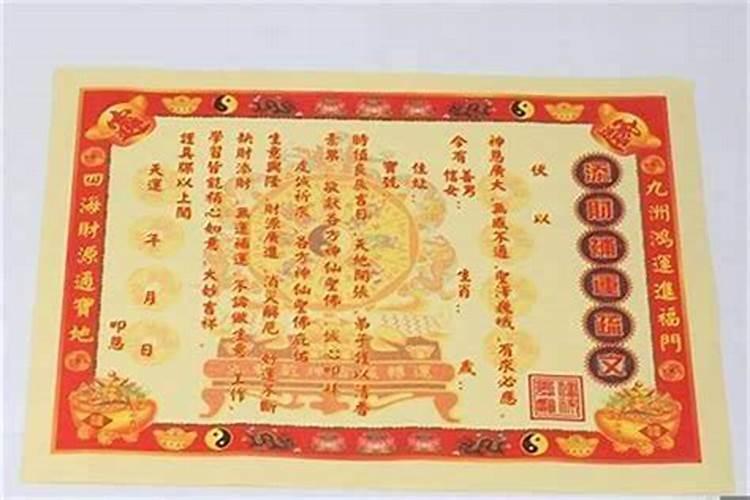 九洲鴻運進福門
添財補運疏文
伏以
神恩廣大 無感不通 聖澤巍峨 有求必應
今有善男信女: 生肖: 歲:
住址:
寶號
時值良辰吉日 天地開張 弟子謹以清香
素果 敬獻各方神仙聖佛 誠心叩拜
虔誠祈求 各方神仙聖佛庇佑
生意興隆 財源廣進 消災解厄 好運不斷
缺財添財 無運補運 不論做生意 工作、
學習皆能稱心如意 大妙吉祥
謹具牒以上聞
天運 年 月 日 叩懇
四海財源通寶地